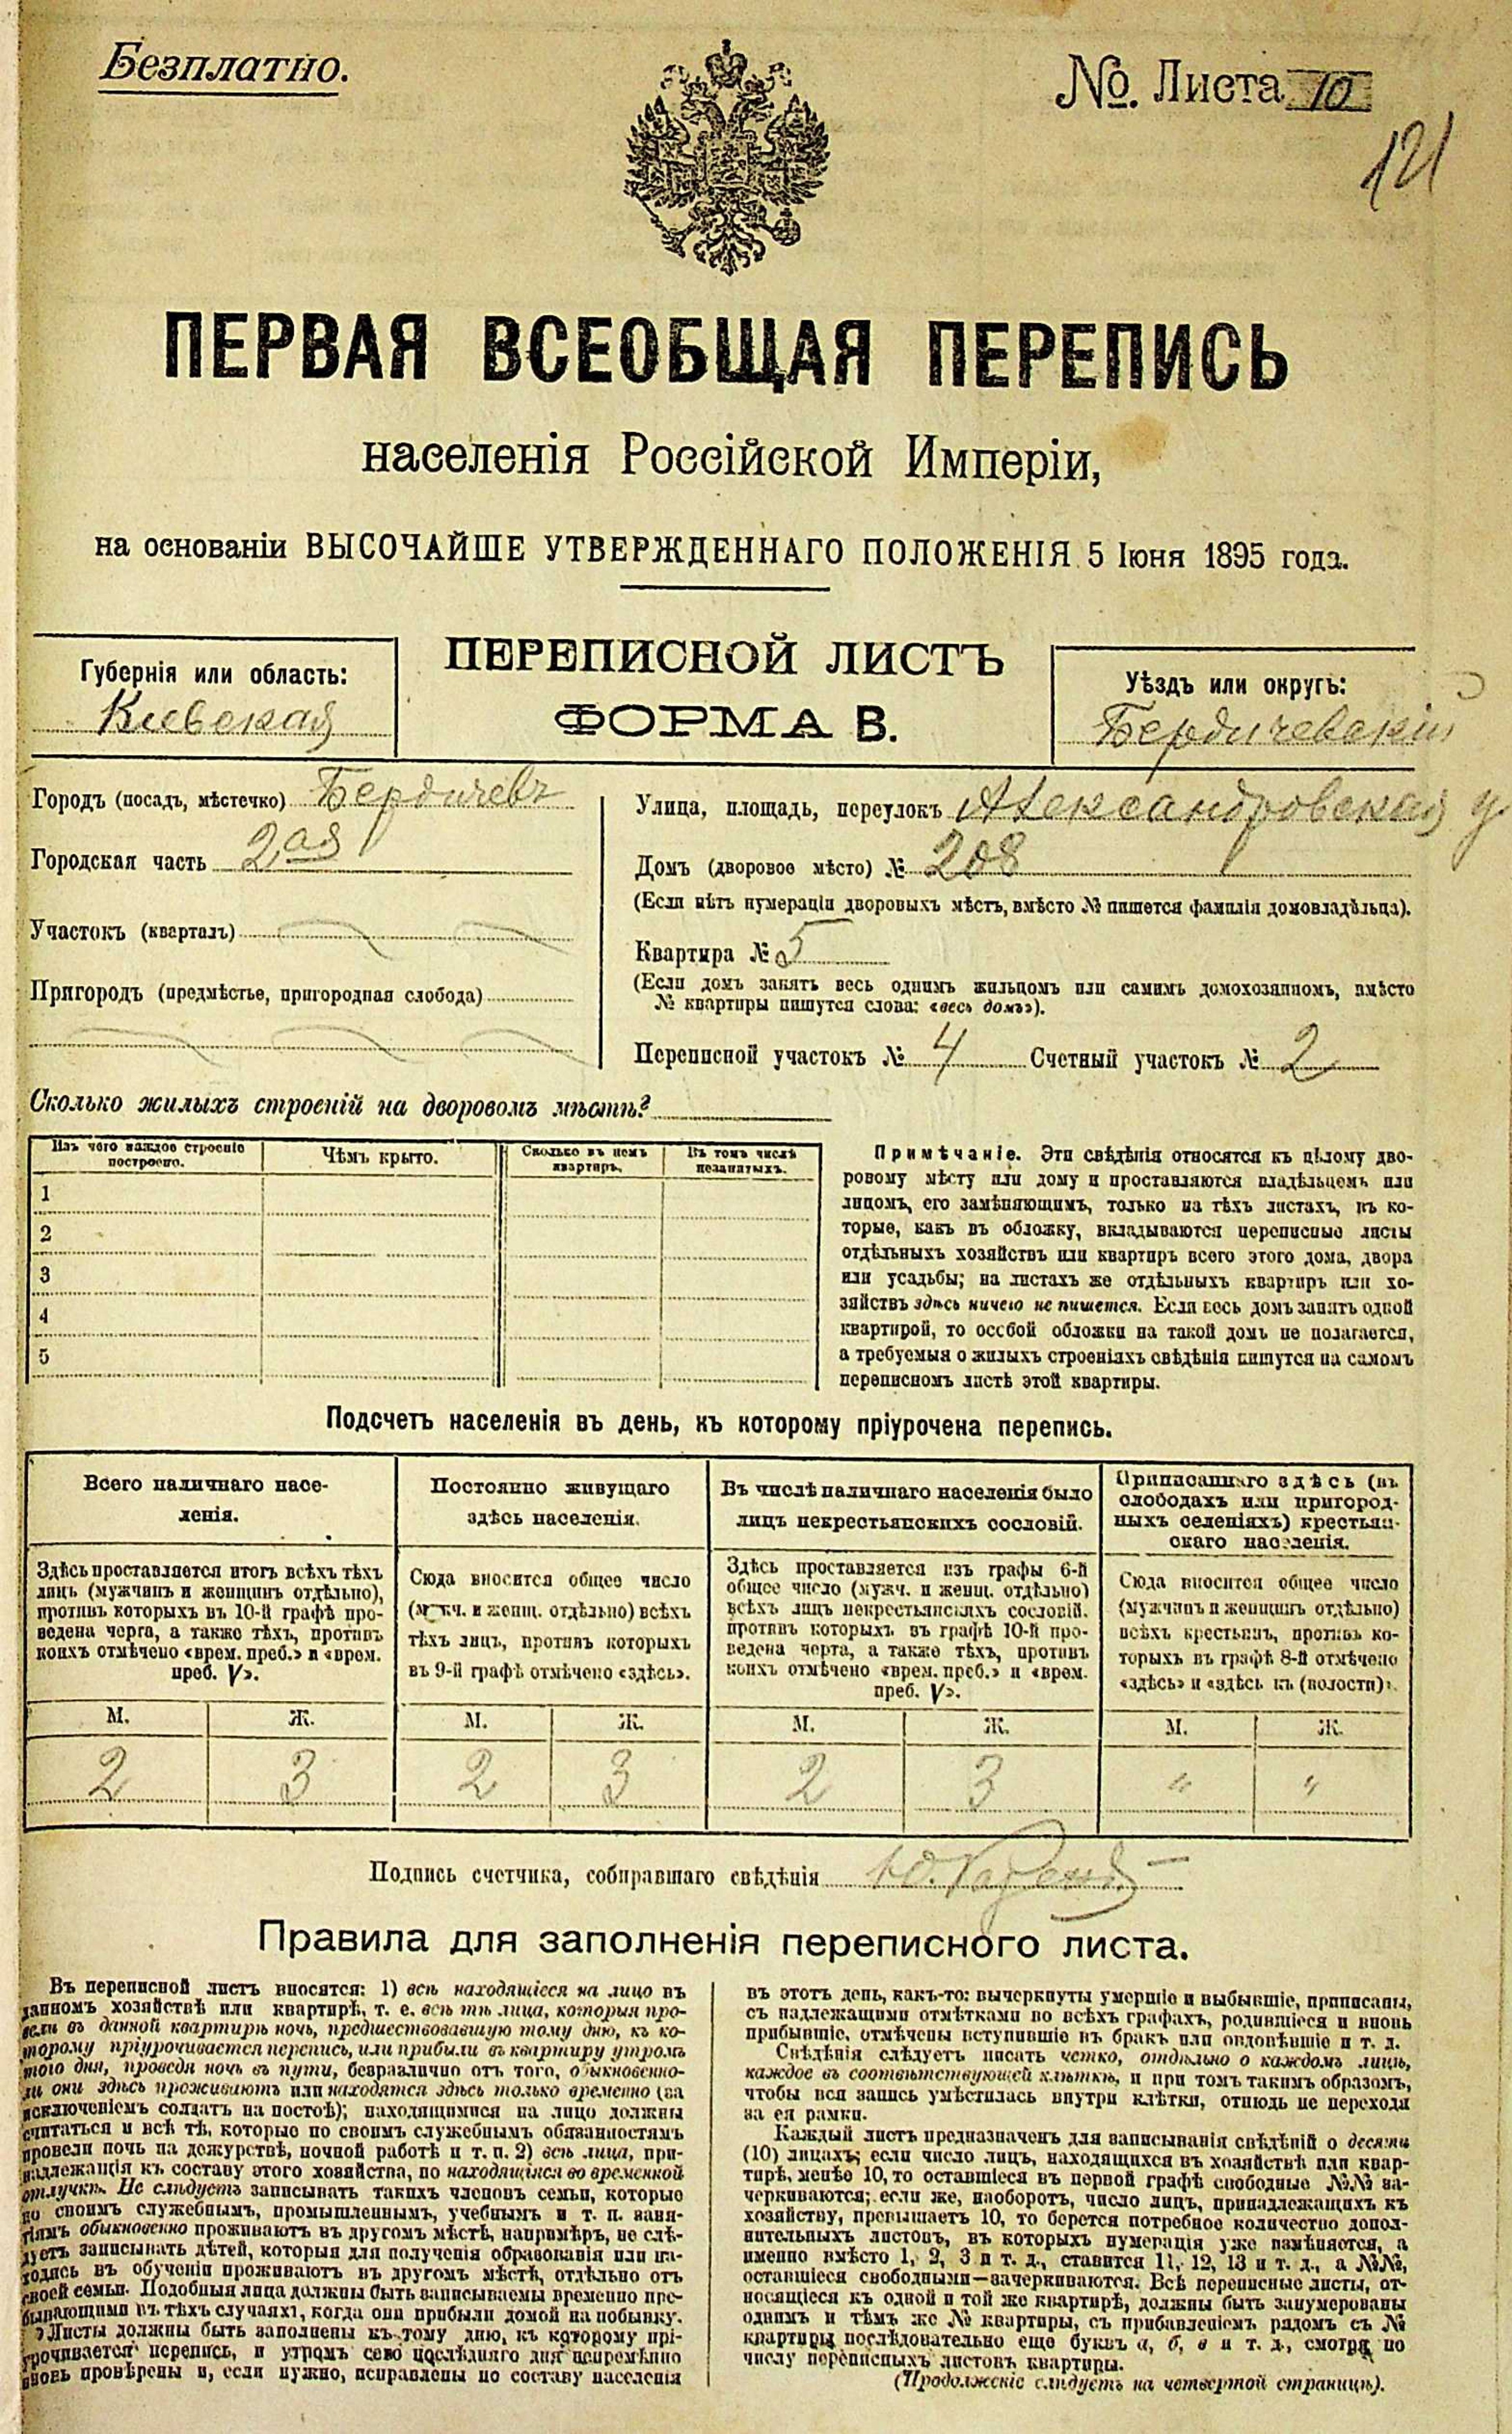 Безплатно.
№. Листа 10
121
ПЕРВАЯ ВСЕОБЩАЯ ПЕРЕПИСЬ
населенія Россійской Имперіи,
на основаніи ВЫСОЧАЙШЕ УТВЕРЖДЕННАГО ПОЛОЖЕНІЯ 5 Іюня 1895 года.
ПЕРЕПИСНОЙ ЛИСТЪ
ФОРМА В.
Губернія или область:
Кіевская
Уѣздъ или округъ:
Бердичевскій
Городъ (посадъ, мѣстечко) Бердичевъ
Городская часть 2ая
Участокъ (кварталъ)
Пригородъ (предмѣстье, пригородная слобода)
Улица, площадь, переулокъ Александровская у
Домъ (дворовое мѣсто) № 208
(Если нѣтъ нумераціи дворовыхъ мѣстъ, вмѣсто № пишется фамилія домовладѣльца).
Квартира № 5
(Если домъ занятъ весь однимъ жильцомъ или самимъ домохозяиномъ, вмѣсто
№ квартиры пишутся слова: «весь домъ»).
Переписной участокъ № 4 Счетный участокъ № 2
Сколько жилыхъ строеній на дворовомъ мѣстѣ?
Изъ чего каждое строеніе
построено.
Чѣмъ крыто.
Сколько въ немъ
квартиръ.
Въ томъ числѣ
незанятыхъ.
1
2
3
4
5
Примѣчаніе. Эти свѣдѣнія относятся къ цѣлому дво-
ровому мѣсту или дому и проставляются владѣльцемъ или
лицомъ, его замѣняющимъ, только на тѣхъ листахъ, въ ко-
торые, какъ въ обложку, вкладываются переписные листы
отдѣльныхъ хозяйствъ или квартиръ всего этого дома, двора
или усадьбы; на листахъ же отдѣльныхъ квартиръ или хо-
зяйствъ здѣсь ничего не пишется. Если весь домъ занятъ одной
квартирой, то особой обложки на такой домъ не полагается,
а требуемыя о жилыхъ строеніяхъ свѣдѣнія пишутся на самомъ
переписномъ листѣ этой квартиры.
Подсчетъ населенія въ день, къ которому пріурочена перепись.
Всего наличнаго насе-
ленія.
Здѣсь проставляется итогъ всѣхъ тѣхъ
лицъ (мужчинъ и женщинъ отдѣльно),
противъ которыхъ въ 10-й графѣ про-
ведена черта, а также тѣхъ, противъ
коихъ отмѣчено «врем. преб.» и «врем.
преб. V».
М. Ж.
2 3
Постоянно живущаго
здѣсь населенія.
Сюда вносится общее число
(мужч. и женщ. отдѣльно) всѣхъ
тѣхъ лицъ, противъ которыхъ
въ 9-й графѣ отмѣчено «здѣсь».
М. Ж.
2 3
Въ числѣ наличнаго населенія было
лицъ некрестьянскихъ сословій.
Здѣсь проставляется изъ графы 6-й
общее число (мужч. и женщ. отдѣльно)
всѣхъ лицъ некрестьянскихъ сословій,
противъ которыхъ въ графѣ 10-й про-
ведена черта, а также тѣхъ, противъ
коихъ отмѣчено «врем. преб.» и «врем.
преб. V».
М. Ж.
2 3
Приписаннаго здѣсь (въ
слободахъ или пригород-
ныхъ селеніяхъ) крестьян-
скаго населенія.
Сюда вносится общее число
(мужчинъ и женщинъ отдѣльно)
всѣхъ крестьянъ, противъ ко-
торыхъ въ графѣ 8-й отмѣчено
«здѣсь» и «здѣсь къ (волости)».
М. Ж.
" "
Подпись счетчика, собиравшаго свѣдѣнія
Правила для заполненія переписного листа.
Въ переписной листъ вносятся: 1) всѣ находящіеся на лицо въ
данномъ хозяйствѣ или квартирѣ, т. е. всѣ тѣ лица, которыя про-
вели въ данной квартирѣ ночь, предшествовавшую тому дню, къ ко-
торому пріурочивается перепись, или прибыли въ квартиру утромъ
того дня, проведя ночь въ пути, безразлично отъ того, обыкновенно-
ли они здѣсь проживаютъ или находятся здѣсь только временно (за
исключеніемъ солдатъ на постоѣ); находящимися на лицо должны
считаться и всѣ тѣ, которые по своимъ служебнымъ обязанностямъ
провели ночь на дежурствѣ, ночной работѣ и т. п. 2) всѣ лица, при-
надлежащія къ составу этого хозяйства, но находящіяся во временной
отлучкѣ. Не слѣдуетъ записывать такихъ членовъ семьи, которые
по своимъ служебнымъ, промышленнымъ, учебнымъ и т. п. заня-
тіямъ обыкновенно проживаютъ въ другомъ мѣстѣ, напримѣръ, не слѣ-
дуетъ записывать дѣтей, которыя для полученія образованія или на-
ходясь въ обученіи проживаютъ въ другомъ мѣстѣ, отдѣльно отъ
своей семьи. Подобныя лица должны быть записываемы временно пре-
бывающими въ тѣхъ случаяхъ, когда они прибыли домой на побывку.
Листы должны быть заполнены къ тому дню, къ которому прі-
урочивается перепись, и утромъ сего послѣдняго дня непремѣнно
вновь провѣрены и, если нужно, исправлены по составу населенія
въ этотъ день, какъ-то: вычеркнуты умершіе и выбывшіе, приписаны,
съ надлежащими отмѣтками во всѣхъ графахъ, родившіеся и вновь
прибывшіе, отмѣчены вступившіе въ бракъ или овдовѣвшіе и т. д.
Свѣдѣнія слѣдуетъ писать четко, отдѣльно о каждомъ лицѣ,
каждое въ соотвѣтствующей клѣткѣ, и при томъ такимъ образомъ,
чтобы вся запись умѣстилась внутри клѣтки, отнюдь не переходя
за ея рамки.
Каждый листъ предназначенъ для записыванія свѣдѣній о десяти
(10) лицахъ; если число лицъ, находящихся въ хозяйствѣ или квар-
тирѣ, менѣе 10, то оставшіеся въ первой графѣ свободные №№ за-
черкиваются; если же, наоборотъ, число лицъ, принадлежащихъ къ
хозяйству, превышаетъ 10, то берется потребное количество допол-
нительныхъ листовъ, въ которыхъ нумерація уже измѣняется, а
именно вмѣсто 1, 2, 3 и т. д., ставится 11, 12, 13 и т. д., а №№,
оставшіеся свободными—зачеркиваются. Всѣ переписные листы, от-
носящіеся къ одной и той же квартирѣ, должны быть занумерованы
однимъ и тѣмъ же № квартиры, съ прибавленіемъ рядомъ съ №
квартиры послѣдовательно еще буквъ а, б, в и т. д., смотря по
числу переписныхъ листовъ квартиры.
(Продолженіе слѣдуетъ на четвертой страницѣ).